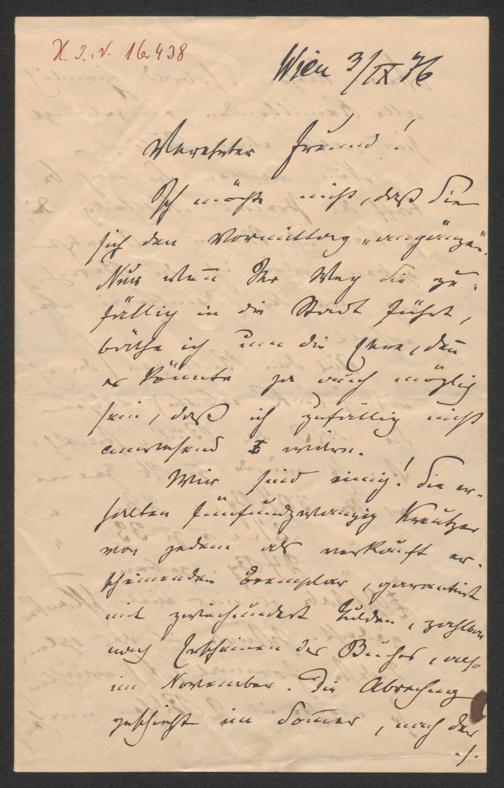 H. I. N. 16438
Wien 3/IX 76
Verehrter Freund!
Ich möchte nicht, daß Sie
sich den Vormittag „
Nur wenn Ihr Weg Sie zu„
fällig in die Stadt führt,
bäthe ich um die Ehre, denn
es könnte ja auch möglich
sein, daß ich zufällig nicht
anwesend wäre.
Wir sind einig! Sie er„
halten fünfundzwanzig Kreutzer
von jedem als verkauft er„
scheinenden Exemplar, garantirt
mit zweihundert Gulden, zahlbar
nach Erscheinen des Buches, also
im November. Die Abrechnung
geschieht im Somer, nach der